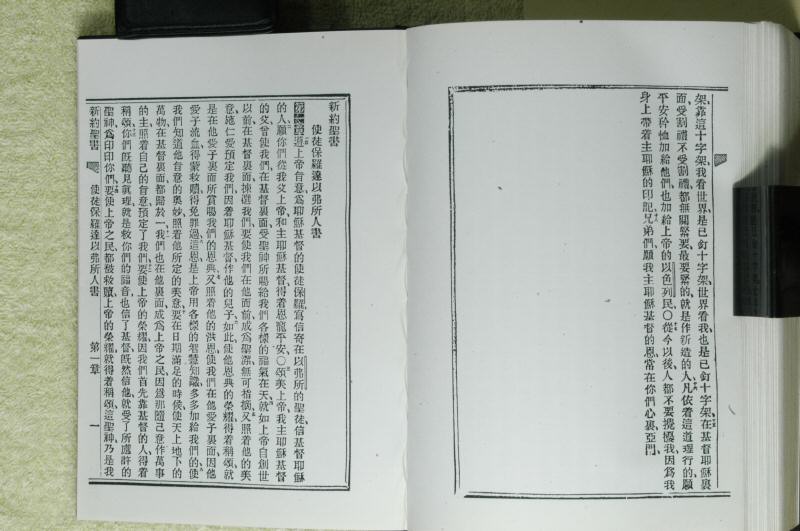 架、靠這十字架、我看世界、是已釘十字架、世界看我、也是已釘十字架、在基督耶穌裏
面、受割禮不受割禮、都無關緊要、最要緊的、就是作新造的人、凡依着這道理行的、願
平安矜恤加給他們、也加給上帝的以色列民、○從今以後、人都不要攪擾我、因爲我
身上帶着主耶穌的印記、兄弟們、願我主耶穌基督的恩、常在你們心裏、亞門、
新約聖書
使徒保羅達以弗所人書
第一章遵上帝旨意、爲耶穌基督的使徒保羅、寫信寄在以弗所的聖徒、信基督耶穌
的人、願你們從我父上帝、和主耶穌基督、得着恩寵平安、○頌美上帝我主耶穌基督
的父、曾使我們、在基督裏面、受聖神所賜給我們各樣的福氣在天、就如上帝自創世
以前、在基督裏面、揀選我們、要使我們在他面前、成爲聖潔無可指摘、又照着他的美
意、施仁愛預定我們、因着耶穌基督作他的兒子、如此、使他恩典的榮耀得着稱頌、就
是在他愛子裏面所賞賜我們的恩典、又照着他的洪恩、使我們在他愛子裏面、因他
愛子流血、得蒙救贖、得免罪過、這恩是上帝用各樣的智慧知識、多多加給我們的、使
我們知道他旨意的奧妙、照着他所定的美意、要在日期滿足的時候、使天上地下的
萬物、在基督裏面都歸於一、我們也在他裏面成爲上帝之民、因爲那隨己意作萬事
的主、照着自己的旨意、預定了我們、要使上帝的榮耀、因我們首先靠基督的人得着
稱頌、你們旣聽見眞理、就是救你們的福音、也信了基督、旣然信他、就受了所應許的
聖神爲印、印你們、要使上帝之民都被救贖、上帝的榮耀就得着稱頌、這聖神乃是我
新約聖書 使徒保羅達以弗所人書 第一章 一